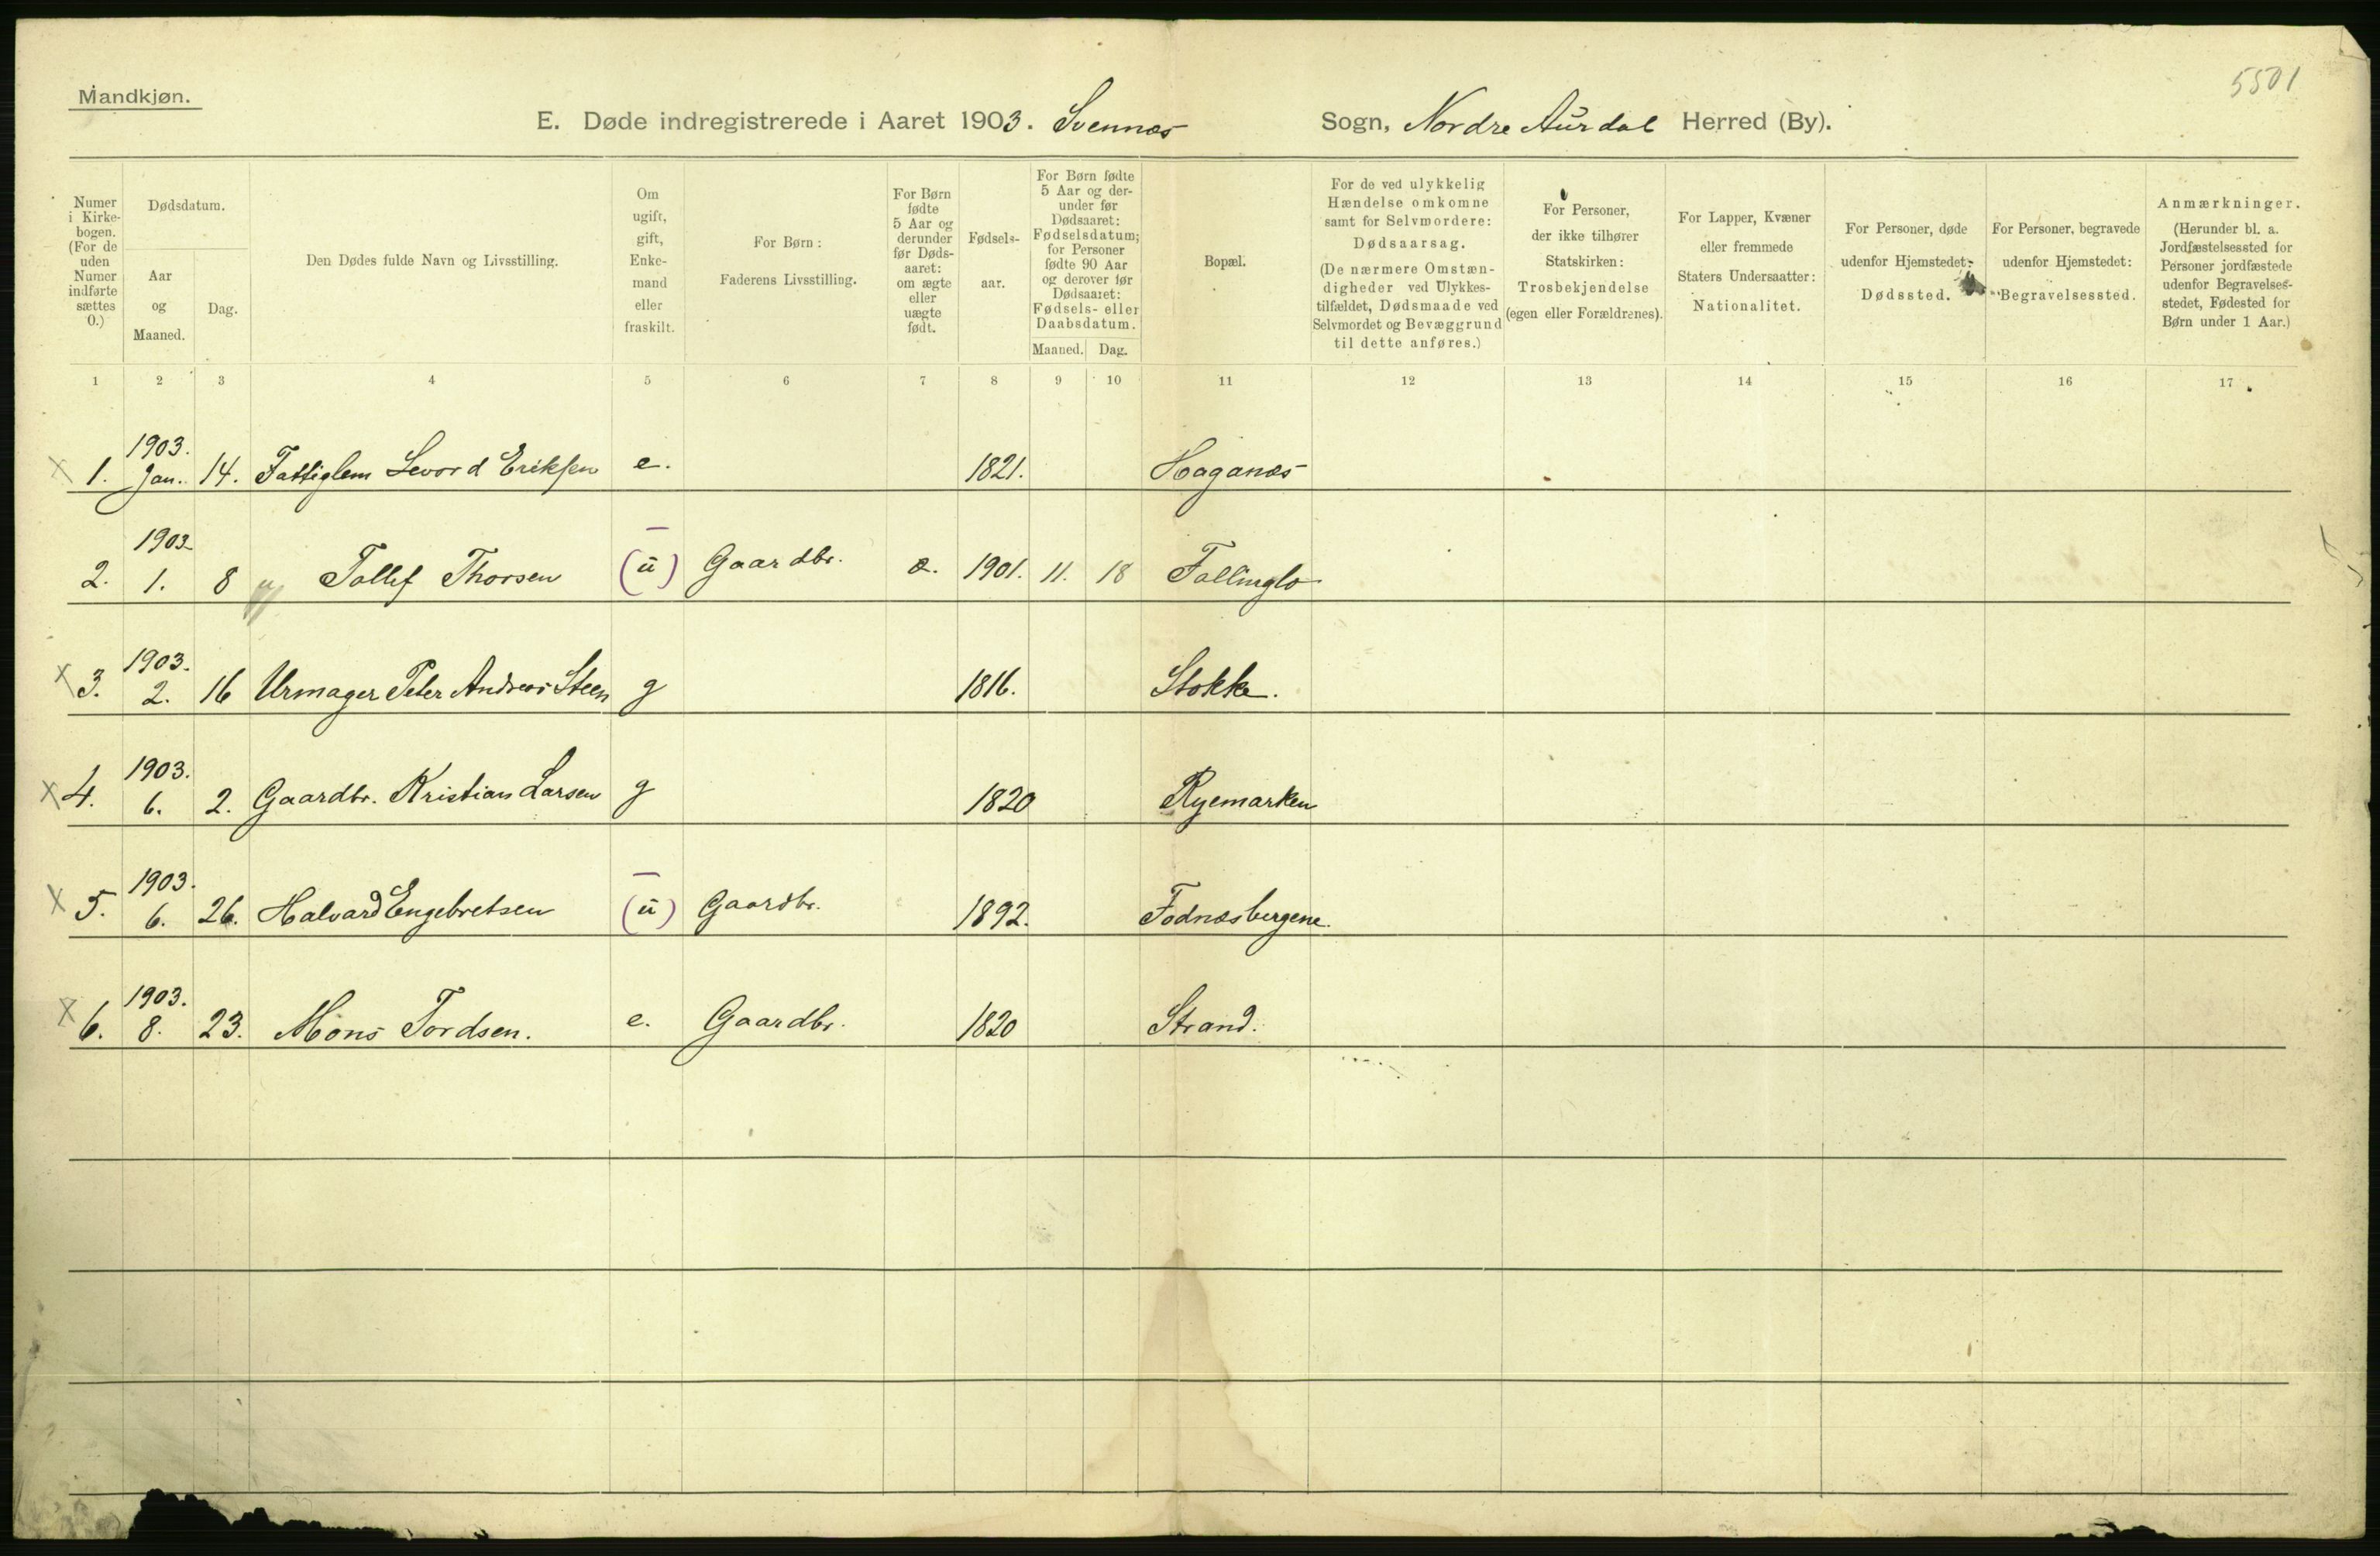 Mandkjøn.
5501
E. Døde indregistrerede i Aaret 1903. Svennæs Sogn, Nordre Aurdal Herred (By).
Numer i Kirke-bogen. (For de uden Numer indførte sættes 0.)
Dødsdatum.
Aar og Maaned.
Dag.
Den Dødes fulde Navn og Livsstilling.
Om ugift, gift, Enke-mand eller fraskilt.
For Børn: Faderens Livsstilling.
For Børn fødte 5 Aar og derunder før Døds-aaret: om ægte eller uægte født.
Fødsels-aar.
For Børn fødte 5 Aar og der-under før Dødsaaret: Fødselsdatum; for Personer fødte 90 Aar og derover før Dødsaaret: Fødsels- eller Daabsdatum.
Maaned. Dag.
Bopæl.
For de ved ulykkelig Hændelse omkomne samt for Selvmordere: Dødsaarsag. (De nærmere Omstæn-digheder ved Ulykkes-tilfældet, Dødsmaade ved Selvmordet og Bevæggrund til dette anføres.)
For Personer, der ikke tilhører Statskirken: Trosbekjendelse (egen eller Forældrenes).
For Lapper, Kvæner eller fremmede Staters Undersaatter: Nationalitet.
For Personer, døde udenfor Hjemstedet: Dødssted.
For Personer, begravede udenfor Hjemstedet: Begravelsessted.
Anmærkninger. (Herunder bl. a. Jordfæstelsessted for Personer jordfæstede udenfor Begravelses-stedet, Fødested for Børn under 1 Aar.)
1 2 3 4 5 6 7 8 9 10 11 12 13 14 15 16 17
x 1. 1903. Jan. 14. Fattiglem Levord Eriksen e. 1821. Haganæs
2. 1903 1. 8 Tollef Thorsen (u) Gaardbr. æ. 1901. 11. 18 Fallinglo
x 3. 1903. 2. 16 Urmager Peter Andreas Steen g 1816. Stokke.
x 4. 1903. 6. 2. Gaardbr. Kristian Larsen g 1820 Ryemarken
x 5. 1903. 6. 26. Halvard Engebretsen (u) Gaardbr. 1892. Fodnæsbergene.
x 6. 1903. 8. 23. Mons Tordsen. e. Gaardbr. 1820 Strand.